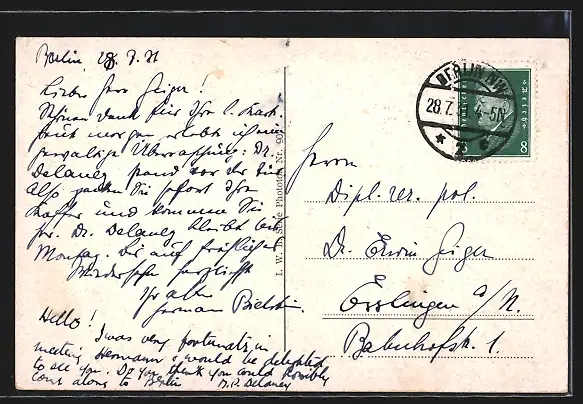 Berlin, 28. 7. 31
Lieber Herr Geiger!
Schönen Dank für Ihre l. Karte.
Heute morgen erlebte ich eine
gewaltige Überraschung: Dr.
Delaney stand vor der Tür
Also packen Sie sofort Ihre
Koffer und kommen Sie
her. Dr. Delaney bleibt bis
Montag. Also auf fröhliches
Wiedersehen herzlichst
Ihr alter
Hermann
Hello!
I was very fortunate in
meeting Hermann & would be delighted
to see you. Do you think you could possibly
come along to Berlin
Delaney
I. W. B., Serie Phototon Nr.
BERLIN NW
28.7. 4-5N
8 8
Herrn
Dipl. rer. pol.
Dr. Erwin Geiger
Esslingen a/N.
Bahnhofstr. 1.